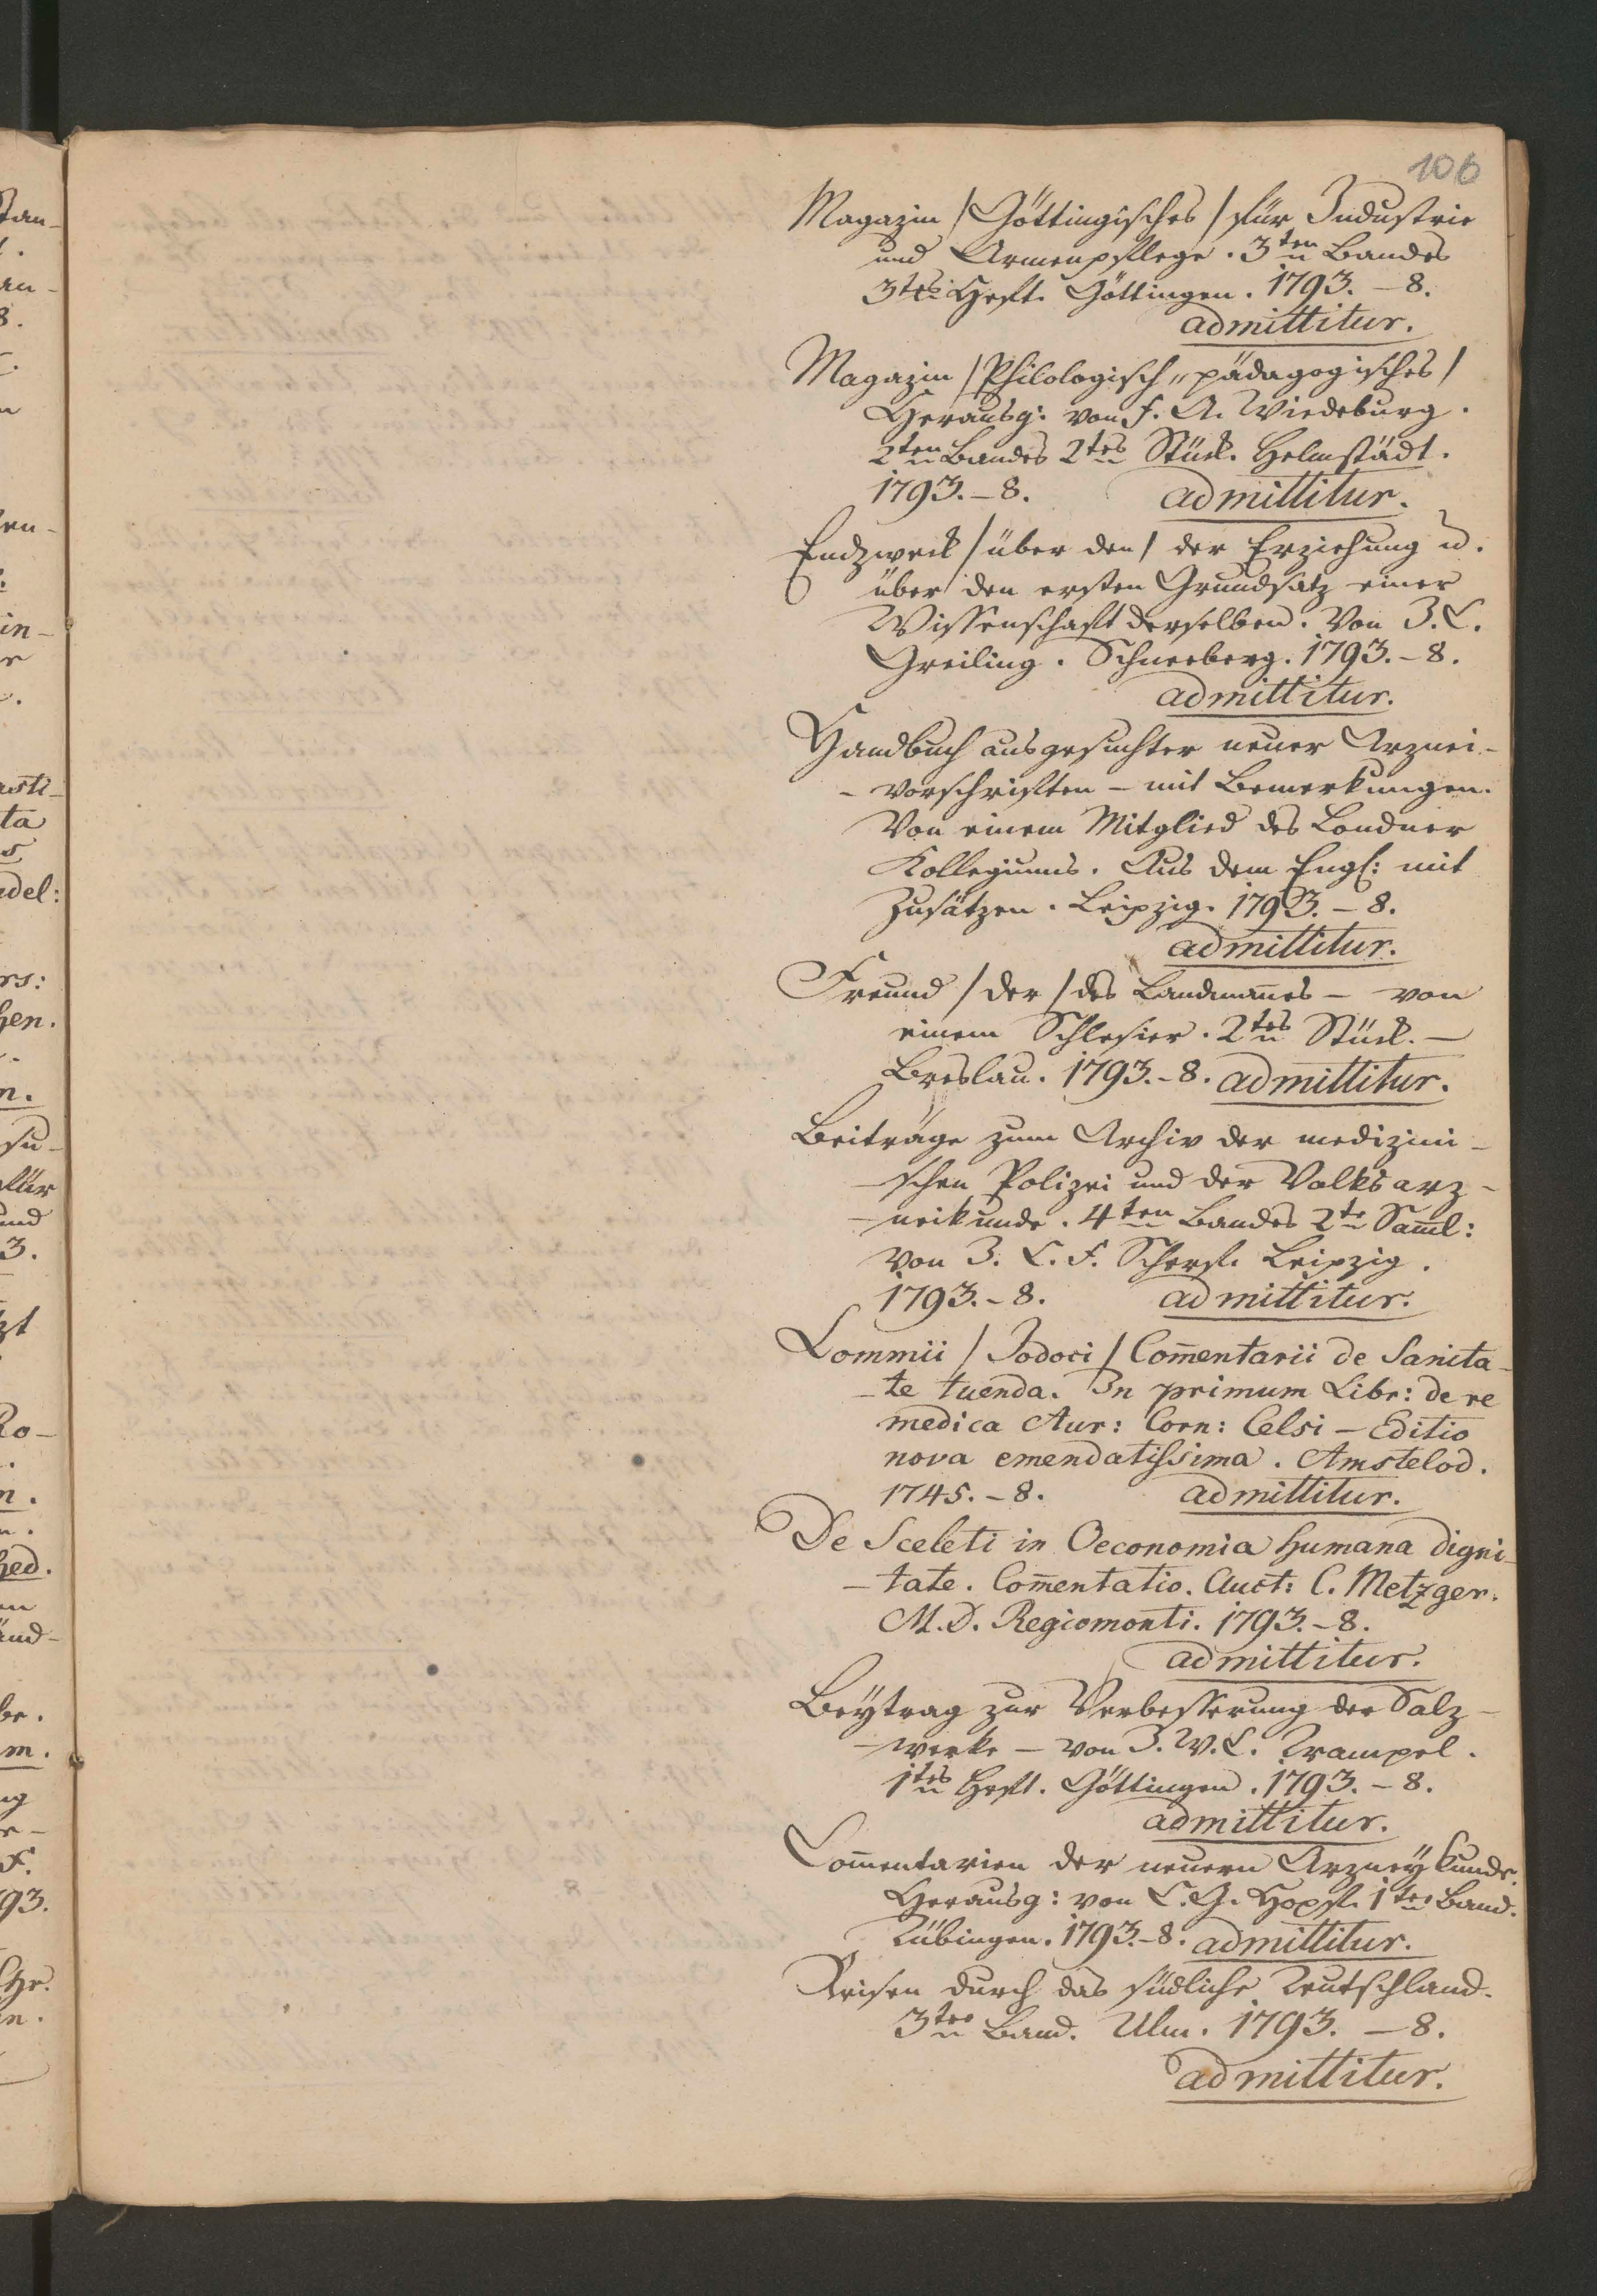 106
Magazin / Göttingisches / für Industrie
und Armenpflege. 3ten Bandes
3tes Heft. Göttingen. 1793. – 8.
admittitur.
Magazin / Philologisch „ pädagogisches /
Herausg: von F. A. Wiedeburg.
2ten Bandes 2tes Stück. Helmstädt.
1793. – 8. admittitur.
Endzweck / über den / der Erziehung u.
über den ersten Grundsatz einer
Wissenschaft derselben. Von J. C.
Greiling. Schneeberg. 1793. – 8.
admittitur.
Handbuch ausgesuchter neuer Arznei-
- vorschriften – mit Bemerkungen.
Von einem Mitglied des Londner
Kollegiums. Aus dem Engl: mit
Zusätzen. Leipzig. 1793. – 8.
admittitur.
Freund / der / des Landman̅es – von
einem Schlesier. 2tes Stück. –
Breslau. 1793. – 8. admittitur.
Beiträge zum Archiv der medizini-
- schen Polizei und der Volksarz-
- neikunde. 4ten Bandes 2te Sam̅l:
von J. C. F. Scherf. Leipzig.
1793. – 8. admittitur.
Lommii / Jodoci / Com̅entarii de Sanita-
- te tuenda. In primum Libr: de re
medica Aur: Corn: Celsi – Editio
nova emendatissima. Amstelod.
1745. – 8. admittitur.
De Sceleti in Oeconomia humana digni-
- tate. Com̅entatio. Auct: C. Metzger.
M. D. Regiomonti. 1793. – 8.
admittitur.
Beÿtrag zur Verbesserung der Salz-
- werke – von J. W. C. Trampel.
1tes Heft. Göttingen. 1793. – 8.
admittitur.
Com̅entarien der neuern Arzneÿkunde.
Herausg: von C. G. Hopf. 1ter Band.
Tübingen. 1793. – 8. admittitur.
Reisen durch das südliche Teutschland.
3ter Band. Ulm. 1793. – 8.
admittitur.